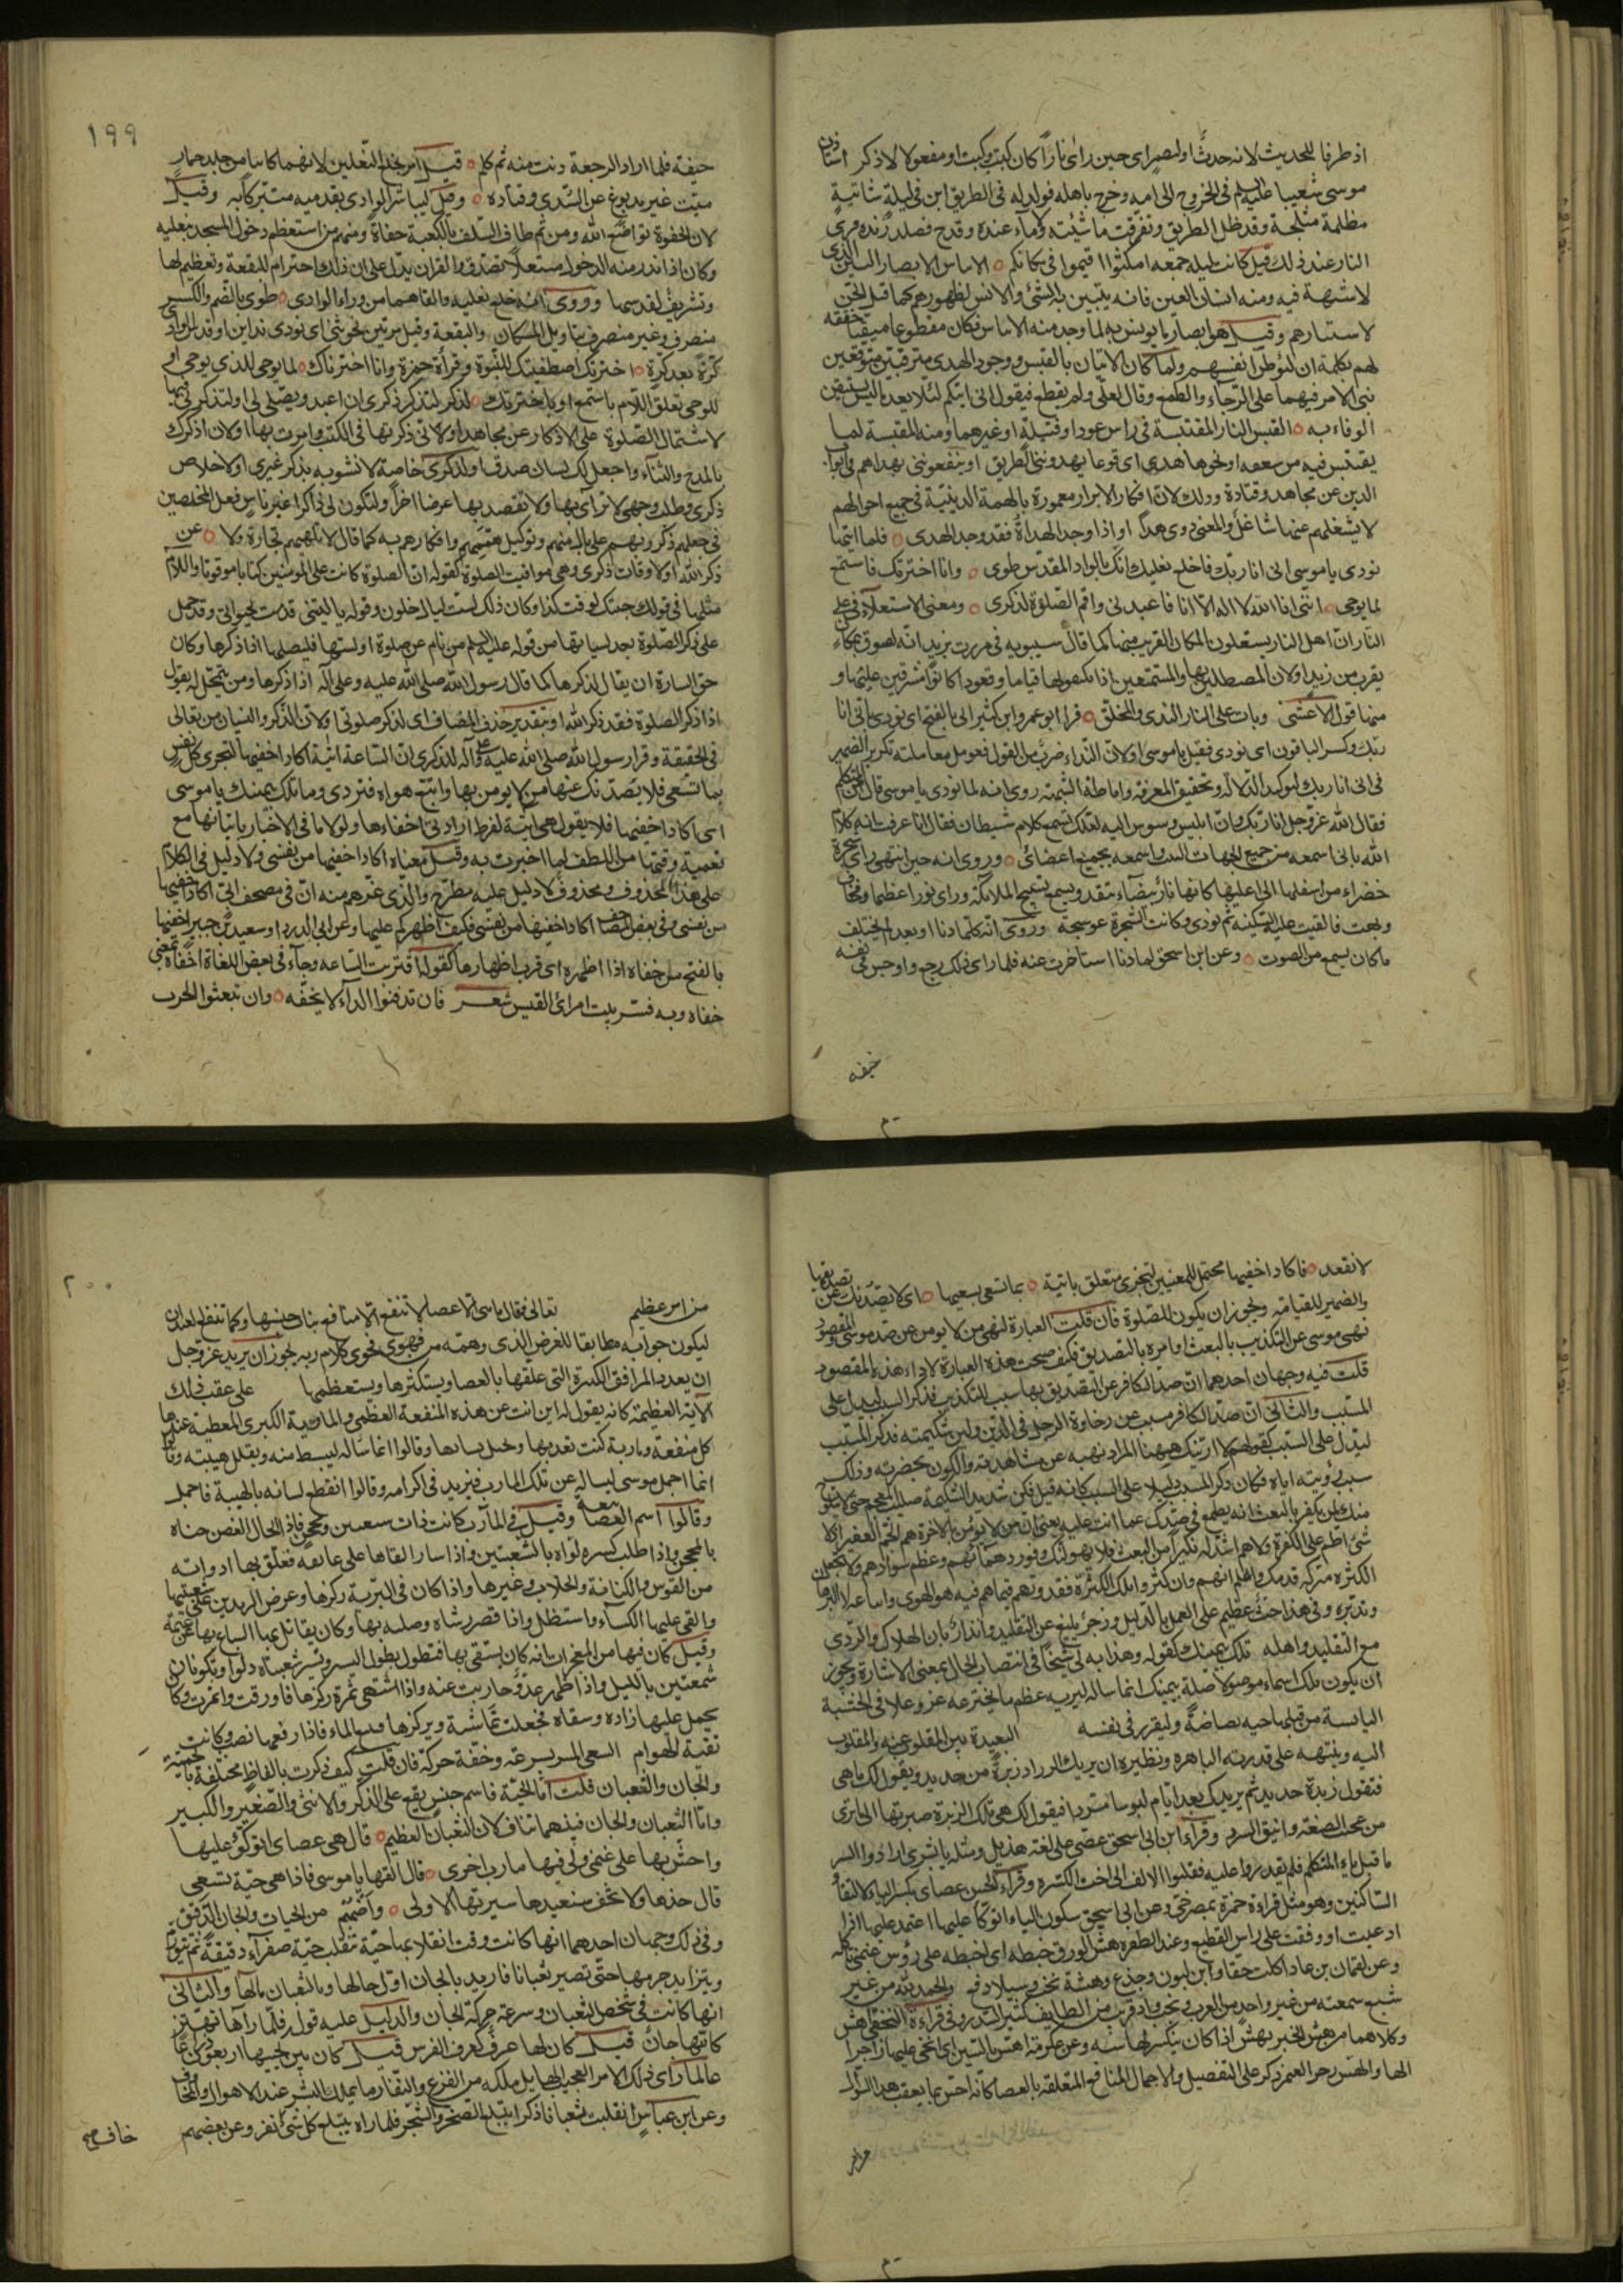 اذ ظرفا للحديث لانه حدث او لمضمر اى حين راى نارا كان كيت وكيت او مفعولا لاذكر استاذن
موسى شعيبا عليه السلم فى الخروج الى امه وخرج باهله فولد له فى الطريق ابن فى ليلة شاتية
مظلمة مثلجة وقد ضل الطريق وتفرقت ماشيته ولا ماء عنده وقدح فصلد زنده فراى
النار عند ذلك قيل كانت ليلة جمعه امكثوا اقيموا فى مكانكم الايناس الابصار البين الذى
لا شبهة فيه ومنه انسان العين فانه يتبين به الشئ والانس لظهورهم كما قيل الجن
لاستتارهم وقيل هو ابصار ما يونس به لما وجد منه الايناس فكان مقطوعا متيقنا حققه
لهم بكلمة ان ليوطن انفسهم ولما كان الاتيان بالقبس ووجود الهدى مترقبين متوقعين
بنى الامر فيهما على الرجاء والطمع وقال لعلى ولم يقطع فيقول انى اتيكم لئلا يعد ما ليس يستيقن
الوفاء به القبس النار المقتبسة فى راس عود او فتيلة او غيرهما ومنه المقبسة لما
يقتبس فيه من سعفه او نحوها هدى اى قوما يهدوننى الطريق او ينفعوننى بهداهم فى ابواب
الدين عن مجاهد وقتادة وذلك لان افكار الابرار معمورة بالهمة الدينية فى جميع احوالهم
لا يشغلهم عنها شاغل والمعنى ذوى هدى او اذا وجد الهداة فقد وجد الهدى فلما اتيها
نودى ياموسى انى انا ربك فاخلع نعليك انك بالواد المقدس طوى وانا اخترتك فاستمع
لما يوحى اننى انا الله لا اله الا انا فاعبدنى واقم الصلوة لذكرى ومعنى الاستعلاء فى على
النار ان اهل النار يستعلون المكان القريب منها كما قال سيبويه فى مررت بزيد انه لصوق بمكان
يقرب من زيد او لان المصطلين بها والمستمتعين اذا تكنفوها قياما وقعودا كانوا مشرفين عليها و
منها قول الاعشى وبات على النار الندى والمحلق قرا ابو عمرو وابن كثير انى بالفتح اى نودى بانى انا
ربك وكسر الباقون اى نودى فقيل ياموسى او لان النداء ضرب من القول فعومل معاملته تكرير الضمير
فى انى انا ربك لتوكيد الدلالة وتحقيق المعرفة واماطة الشبهة روى انه لما نودى ياموسى قال من المتكلم
فقال الله عز وجل انا ربك وان ابليس وسوس اليه لعلك تسمع كلام شيطان فقال انا عرفت انه كلام
الله بانى اسمعه من جميع الجهات الست واسمعه بجميع اعضائى وروى انه حين انتهى راى شجرة
خضراء من اسفلها الى اعليها كانها نار بيضاء تتقد وسمع تسبيح الملائكة وراى نورا عظيما فخاف
وبهت فالقيت عليه السكينه ثم نودى وكانت الشجرة عوسجة وروى انه كلما دنا او بعد لم يختلف
ما كان يسمع من الصوت وعن ابن اسحق لما دنا استاخرت عنه فلما راى ذلك رجع واوجس فى نفسه
خيفه
١٩٩
خيفة فلما اراد الرجعة دنت منه ثم كلم قيل امر بخلع النعلين لانهما كانتا من جلد حمار
ميت غير مدبوغ عن السدى وقتاده وقيل ليباشر الوادى بقدميه متبركا به وقيل
لان الحفوة تواضع لله ومن ثم طاف السلف بالكعبة حفاة ومنهم من استعظم دخول المسجد بنعليه
وكان اذا ندر منه الدخول منتعلا تصدق والقران يدل على ان ذلك احترام للبقعة وتعظيم لها
وتشريف لقدسها وروى انه خلع نعليه والقاهما من وراء الوادى طوى بالضم والكسر
منصرف وغير منصرف بتاويل المكان والبقعة وقيل مرتين نحو ثنى اى نودى ندائين او قدس الوادى
كرة بعد كرة اخترتك اصطفيتك للنبوة وقراة حمزة وانا اخترناك لما يوحى للذى يوحى او
للوحى تعلق اللام باستمع او باخترتك لذكرى لتذكر ذكرى ان اعبد ويصلى لى او لتذكرنى فيها
لاشتمال الصلوة على الاذكار عن مجاهد او لانى ذكرتها فى الكتب وامرت بها او لان اذكرك
بالمدح والثناء واجعل لك لسان صدق او لذكرى خاصة لا تشوبه بذكر غيرى او لاخلاص
ذكرى وطلب وجهى لا ترآى بها ولا تقصد بها غرضا اخر او لتكون لى ذاكرا غير ناس فعل المخلصين
فى جعلهم ذكر ربهم على بال منهم وتوكيل هممهم وافكارهم به كما قال لا تلهيهم تجارة ولا عن
ذكر الله او لاوقات ذكرى وهى مواقيت الصلوة كقوله ان الصلوة كانت على المومنين كتابا موقوتا واللام
مثلها فى قولك جئتك لوقت كذا وكان ذلك لست ليال خلون وقوله يا ليتنى قدمت لحيوتى وقد حمل
على ذكر الصلوة بعد نسيانها من قوله عليه السلم من نام عن صلوة او نسيها فليصلها اذا ذكرها وكان
حق العبارة ان يقال لذكرها كما قال رسول الله صلى الله عليه وعلى آله اذا ذكرها ومن يتمحل له يقول
اذا ذكر الصلوة فقد ذكر الله او بتقدير حذف المضاف اى لذكر صلوتى او لان الذكر والنسيان من تعالى
فى الحقيقة وقرا رسول الله صلى الله عليه وعلى آله للذكرى ان الساعة اتية اكاد اخفيها لتجزى كل نفس
بما تسعى فلا يصدنك عنها من لا يومن بها واتبع هواه فتردى وما تلك بيمينك ياموسى
اى اكاد اخفيها فلا يقول هى اتية لفرط ارادتى اخفاءها ولولا ما فى الاخبار باتيانها مع
تعمية وقتها من اللطف لما اخبرت به وقيل معناه اكاد اخفيها من نفسى ولا دليل فى الكلام
على هذا المحذوف ومحذوف لا دليل عليه مطرح والذى غرهم منه ان فى مصحف ابى اكاد اخفيها
من نفسى وفى بعض المصاحف اكاد اخفيها من نفسى فكيف اظهركم عليها وعن ابى الدرداء وسعيد بن جبير اخفيها
بالفتح من خفاه اذا اظهره اى قرب اظهارها كقوله اقتربت الساعه وجاء فى بعض اللغات اخفاه بمعنى
خفاه وبه فسر بيت امرئ القيس شعر فان تدفنوا الداء لا نخفه وان تبعثوا الحرب
لا نقعد فاكاد اخفيها محتمل للمعنيين لتجزى متعلق باتية بما تسعى بسعيها اى لا يصدنك عن تصديقها
والضمير للقيامة ويجوز ان يكون للصلوة فان قلت العبارة لنهى من لا يومن عن صد موسى والمقصود
نهى موسى عن التكذيب بالبعث او امره بالتصديق فكيف صحت هذه العبارة لاداء هذه المقصود
قلت فيه وجهان احدهما ان صد الكافر عن التصديق بها سبب للتكذيب فذكر السبب ليدل على
المسبب والثانى ان صد الكافر مسبب عن رخاوة الرجل فى الدين ولين شكيمته فذكر المسبب
ليدل على السبب كقولهم لا ارينك ههنا المراد نهيه عن مشاهدته والكون بحضرته وذلك
سبب رؤيته اياه فكان ذكر المسبب دليلا على السبب كانه قيل فكن شديد الشكيمة صليب المعجم حتى لا يتلوح
منك لمن يكفر بالبعث انه يطمع فى صدك عما انت عليه يعنى ان من لا يومن بالاخرة هم الجم الغفير اذ لا
شئ اطم على الكفرة ولا هم اشد له نكيرا من البعث فلا يهولنك وفور دهمائهم وعظم سوادهم ولا تجعل
الكثرة مزلة قدمك واعلم انهم وان كثروا تلك الكثرة فقدوتهم فيما هم فيه هو الهوى واتباعه لا البرهان
وتدبره وفى هذا حث عظيم على العمل بالدليل وزجر بليغ عن التقليد وانذار بان الهلاك والردى
مع التقليد واهله تلك بيمينك كقوله وهذا بعلى شيخا فى انتصاب الحال بمعنى الاشارة ويجوز
ان يكون تلك اسما موصولا صلته بيمينك انما ساله ليريه عظم ما يخترعه عز وعلا فى الخشبة
اليابسة من قلبها حيه نضاضة وليقرر فى نفسه البعيدة بين المقلوب عنه والمقلوب
اليه وينبهه على قدرته الباهرة ونظيره ان يريك الزراد زبرة من حديد ويقول لك ما هى
فتقول زبرة حديد ثم يريك بعد ايام لبوسا مسردا فيقول لك هى تلك الزبرة صيرتها الى ما ترى
من عجيب الصنعة وانيق السرد وقراة ابن ابى اسحق عصى على لغة هذيل ومثله يا بشرى ارادوا كسر
ما قبل ياء المتكلم فلم يقدروا عليه فقلبوا الالف الى اخت الكسرة وقراءة الحسن عصاى بكسر الياء لالتقاء
الساكنين وهو مثل قراءة حمزة بمصرخى وعن ابن ابى اسحق سكون الياء اتوكا عليها اعتمد عليها اذا
اعييت او وقفت على راس القطيع وعند الطفره هش الورق خبطه اى اخبطه على رؤس غنمى تاكله
وعن لقمان بن عاد اكلت حقا وابن لبون وجذع وهشة نخب وسيلا دفع والحمد لله من غير
شبع سمعته من غير واحد من العرب ونخب واد قريب من الطايف كثير السدر وفى قراءة النخعى اهش
وكلاهما من هش الخبز يهش اذا كان ينكسر لهشاشته وعن عكرمة اهس بالسين اى انحى عليها زاجرا
لها والهس زجر الغنم ذكر على التفصيل والاجمال المنافع المتعلقة بالعصا كانه احس بما يعقب هذا السؤال
من امر
٢٠٠
من امر عظيم تعالى فقال ما هى الا عصا لا تنفع الا منافع بنات جنسها وكما تنفع العيدان
ليكون جوابه مطابقا للغرض الذى فهمه من فحوى كلام ربه يجوز ان يريد عز وجل
ان يعدد المرافق الكثيرة التى علقها بالعصا ويستكثرها ويستعظمها على عقب ذلك
الاية العظيمة كانه يقول له اين انت عن هذه المنفعة العظمى والماربة الكبرى المعطية عندها
كل منفعة وماربة كنت تعتد بها وتحتفل بشانها وقالوا انما ساله ليبسط منه ويقلل هيبته وقالوا
انما اجمل موسى ليساله عن تلك المارب فيزيد فى اكرامه وقالوا انقطع لسانه بالهيبة فاجمل
وقالوا اسم العصا نبعة وقيل فى المآرب كانت ذات شعبتين ومحجن فاذا طال الغصن حناه
بالمحجن واذا طلب كسره لواه بالشعبتين واذا سار القاها على عاتقه فعلق بها ادواته
من القوس والكنانة والحلاب وغيرها واذا كان فى البرية ركزها وعرض الزندين على شعبتيها
والقى عليها الكساء واستظل واذا قصر رشاه وصله بها وكان يقاتل بها السباع عن غنمه
وقيل كان فيها من المعجزات انه كان يستقى بها فتطول بطول البئر وتصير شعبتاه دلوا وتكونان
شمعتين بالليل واذا ظهر عدو حاربت عنه واذا اشتهى ثمرة ركزها فاورقت واثمرت وكان
يحمل عليها زاده وسقاه فجعلت تماشيه ويركزها فينبع الماء فاذا رفعها نضب وكانت
تقيه الهوام السعى المشى بسرعة وخفة حركة فان قلت كيف ذكرت بالفاظ مختلفة بالحية
والجان والثعبان قلت اما الحية فاسم جنس يقع على الذكر والانثى والصغير والكبير
واما الثعبان والجان فبينهما تناف لان الثعبان العظيم قال هى عصاى اتوكؤ عليها
واهش بها على غنمى ولى فيها مارب اخرى قال القها ياموسى فاذا هى حية تسعى
قال خذها ولا تخف سنعيدها سيرتها الاولى واضمم من الحيات والجان الدقيق
وفى ذلك وجهان احدهما انها كانت وقت انقلابها حية تنقلب حية صفراء دقيقة ثم تتورم
ويتزايد جرمها حتى تصير ثعبانا فاريد بالجان اول حالها وبالثعبان مآلها والثانى
انها كانت فى شخص الثعبان وسرعة حركة الجان والدليل عليه قوله فلما رآها تهتز
كانها جان قيل كان لها عرف كعرف الفرس قيل كان بين لحييها اربعون ذراعا
لما راى ذلك الامر العجيب الهايل ملكه من الفزع والنفار ما يملك البشر عند الاهوال والمخاوف
وعن ابن عباس انقلبت ثعبانا ذكرا يبتلع الصخر والشجر فلما راه يبتلع كل شئ نفر وعن بعضهم
خاف صح